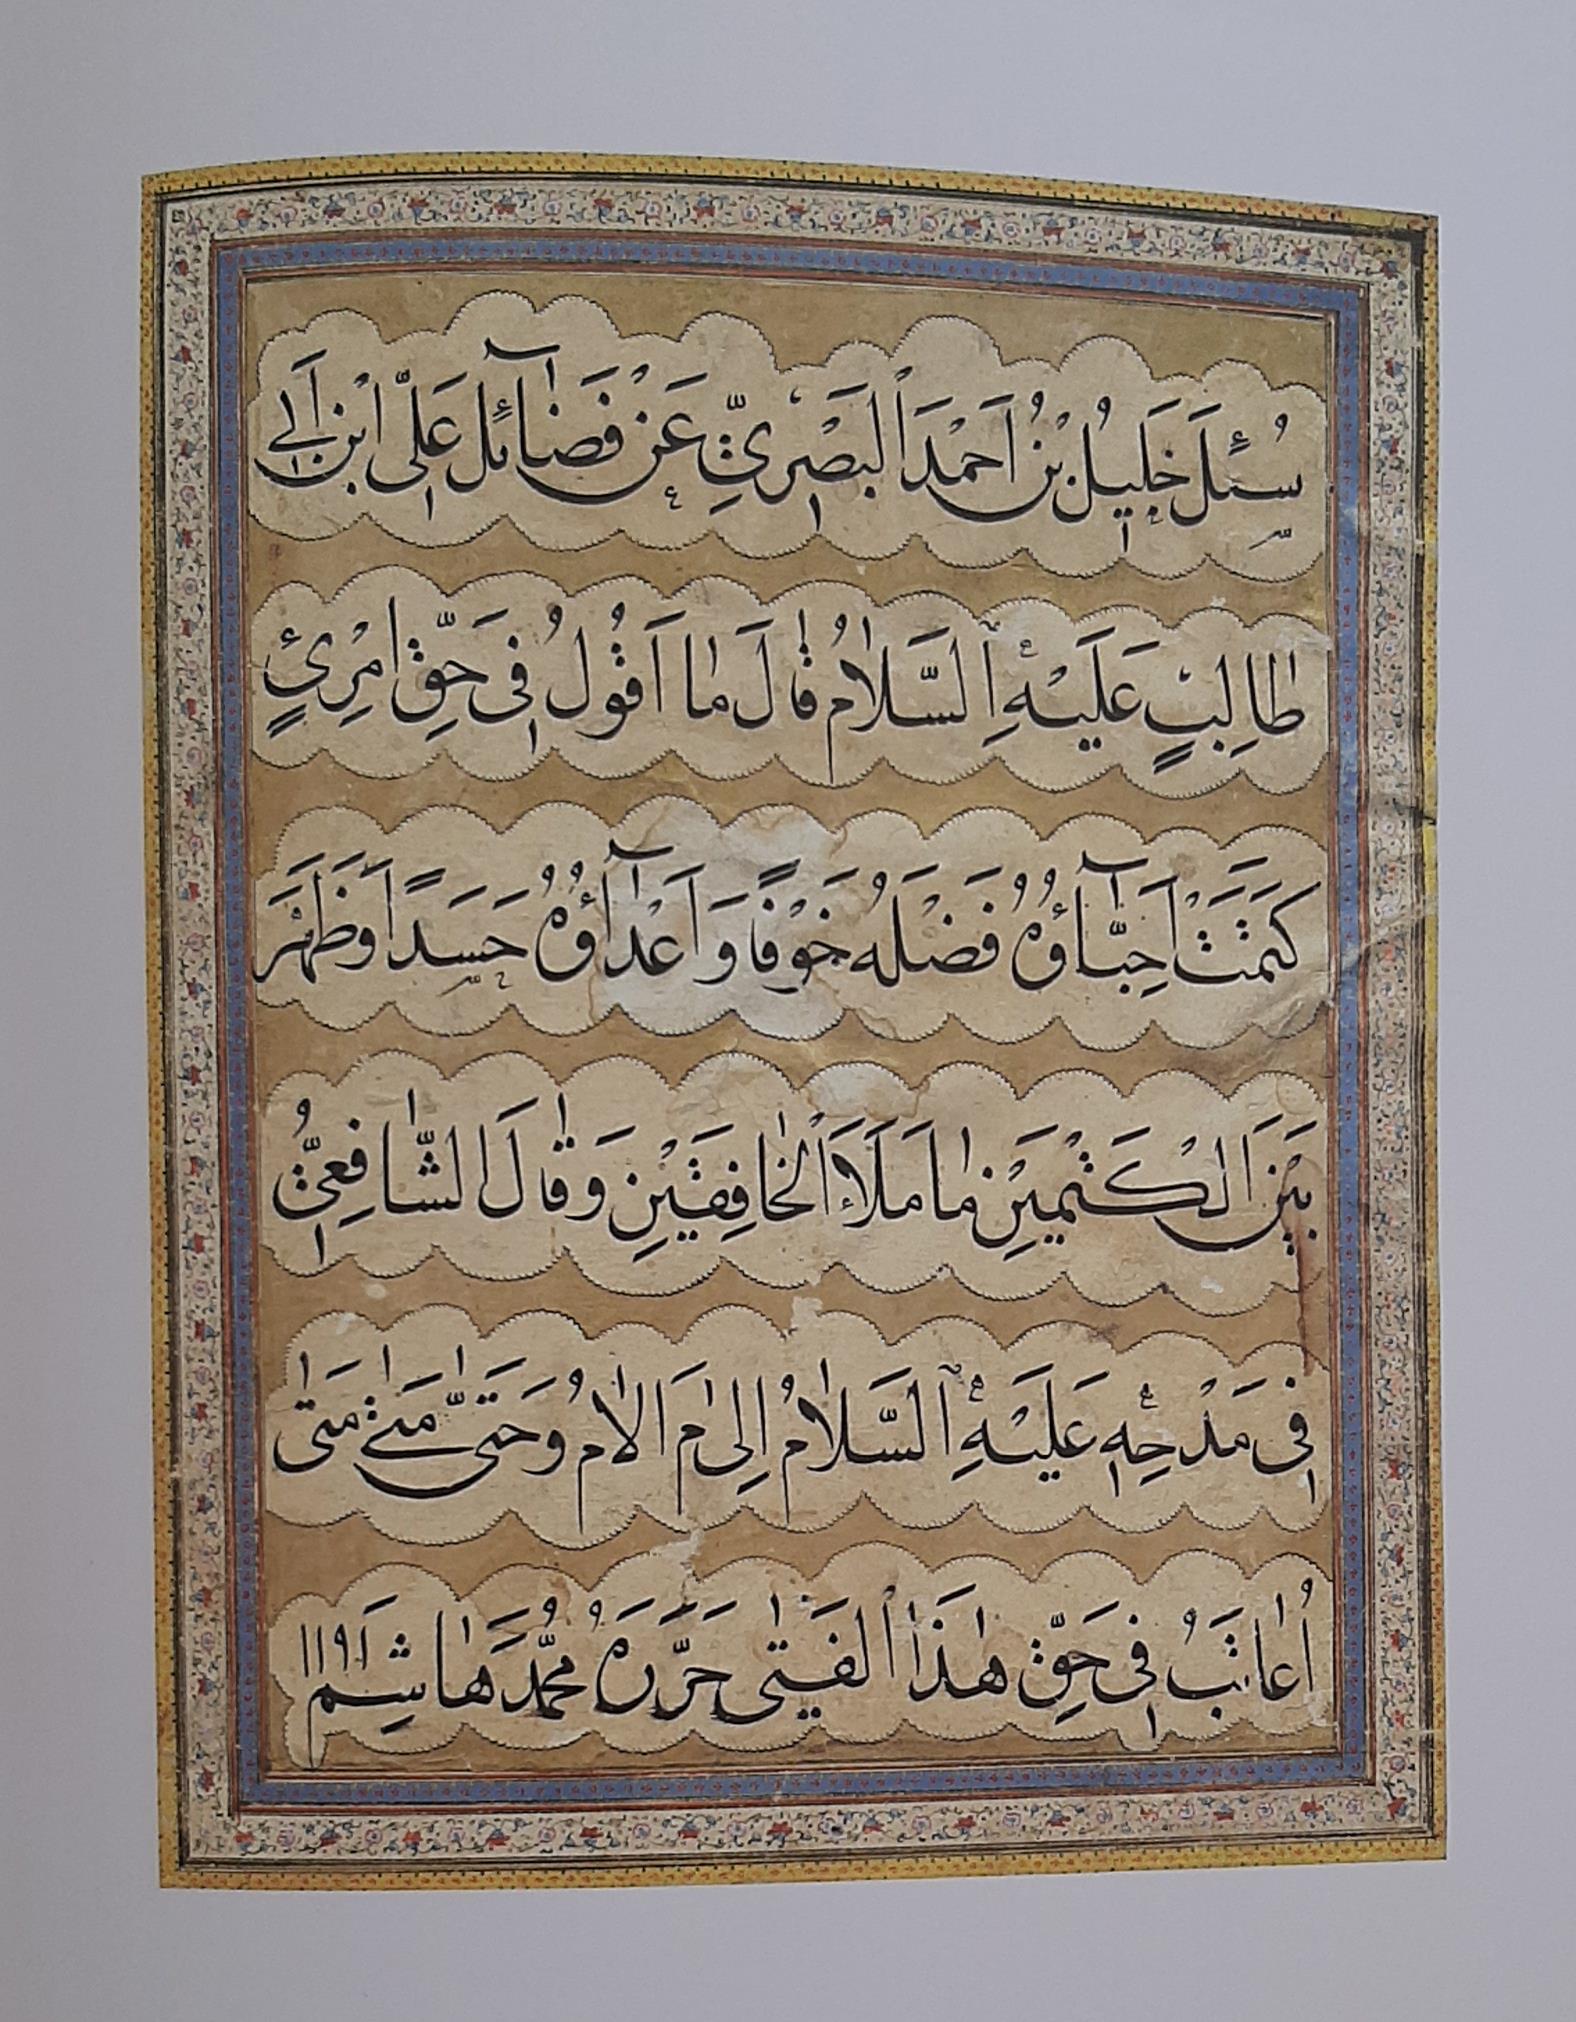 سُئِلَ خَلِيلُ بْنُ اَحْمَدَ الْبَصْرِيِّ عَنْ فَضَآئِلِ عَلِىِّ ابْنِ اَبِى
طَالِبٍ عَلَيْهِ السَّلَامُ قَالَ مَا اَقُولُ فِى حَقِّ امْرِئٍ
كَتَمَتْ اَحِبَّآؤُهُ فَضْلَهُ خَوْفًا وَ اَعْدَآؤُهُ حَسَدًا وَ ظَهَرَ
بَيْنَ الْكَتْمَيْنِ مَا مَلَاَ الْخَافِقَيْنِ وَ قَالَ الشَّافِعِيُّ
فِى مَدْحِهِ عَلَيْهِ السَّلَامُ اِلَىٰ مَ اِلَامُ وَ حَتَّىٰ مَتَىٰ مَتَىٰ
اُعَاتَبُ فِى حَقِّ هٰذَا الْفَتَىٰ حَرَّرَهُ مُحَمَّدْ هَاشِمْ ١١٩١